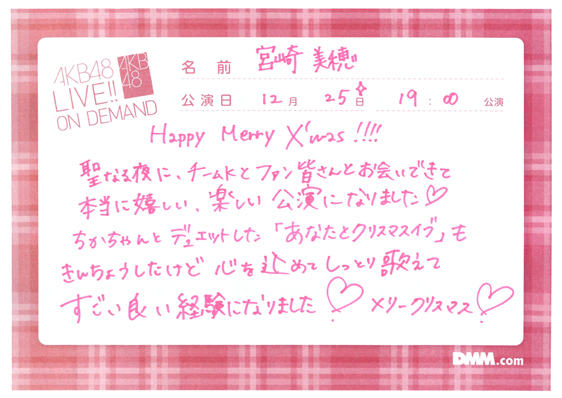 AKB48
LIVE!!
ON DEMAND
AKB
48
名前 宮崎美穂
公演日 12月 25日 19:00 公演
Happy Merry X'mas!!!!
聖なる夜に、チームKとファン皆さんとお会いできて
本当に嬉しい、楽しい公演になりました♡
ちかちゃんとデュエットした「あなたとクリスマスイヴ」も
きんちょうしたけど心を込めてしっとり歌えて
すごい良い経験になりました♡ メリークリスマス♡
DMM.com